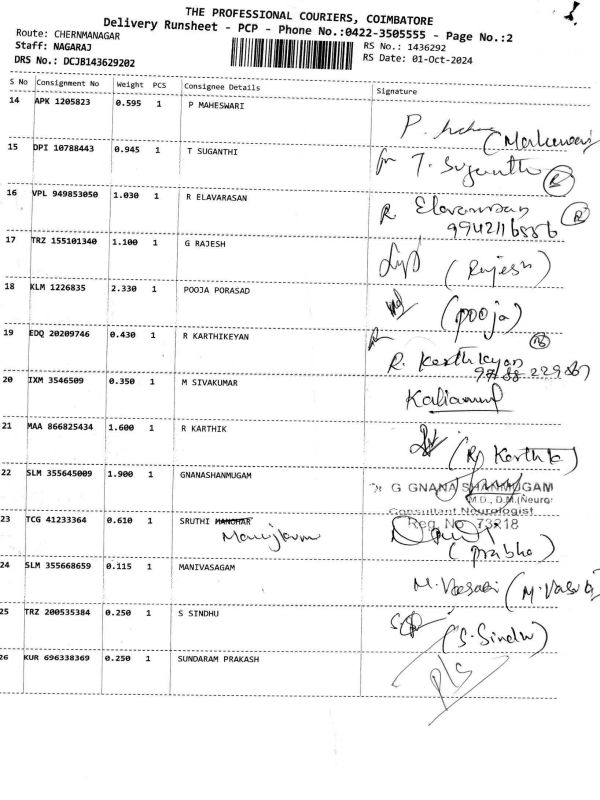 THE PROFESSIONAL COURIERS, COIMBATORE
Delivery Runsheet - PCP - Phone No.:0422-3505555 - Page No.:2
Route: CHERNMANAGAR
Staff: NAGARAJ
DRS No.: DCJB143629202
RS No.: 1436292
RS Date: 01-Oct-2024
S No Consignment No Weight PCS Consignee Details Signature
14 APK 1205823 0.595 1 P MAHESWARI
P.
15 DPI 10788443 0.945 1 T SUGANTHI
for T. Suganthi
16 VPL 949853050 1.030 1 R ELAVARASAN
R Elavarasan
9942116886
17 TRZ 155101340 1.100 1 G RAJESH
(Rajesh)
18 KLM 1226835 2.330 1 POOJA PORASAD
(pooja)
19 EDQ 20209746 0.430 1 R KARTHIKEYAN
R. Karthikeyan
20 IXM 3546509 0.350 1 M SIVAKUMAR
21 MAA 866825434 1.600 1 R KARTHIK
(R Karthik)
22 SLM 355645009 1.900 1 GNANASHANMUGAM
Dr G GNANA SHANMUGAM
M.D., D.M.(Neuro
Consultant Neurologist
Reg. No. 73218
23 TCG 41233364 0.610 1 SRUTHI MANOHAR
(prabha)
24 SLM 355668659 0.115 1 MANIVASAGAM
25 TRZ 200535384 0.250 1 S SINDHU
(S. Sindhu)
26 KUR 696338369 0.250 1 SUNDARAM PRAKASH